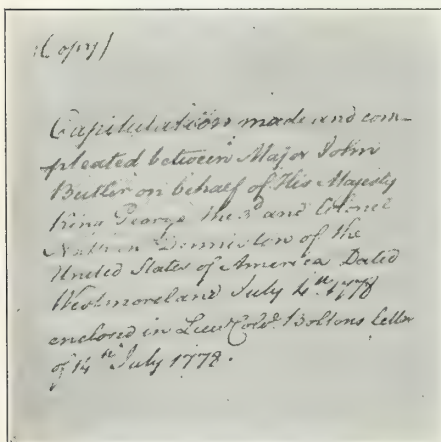 (Copy)
Capitulation made and com-
pleated between Major John
Butler on behalf of His Majesty
King George the 3d and Colonel
Nathan Denniston of the
United States of America Dated
Westmoreland July 4th 1778
enclosed in Lieut Colo. Boltons letter
of 14th July 1778.